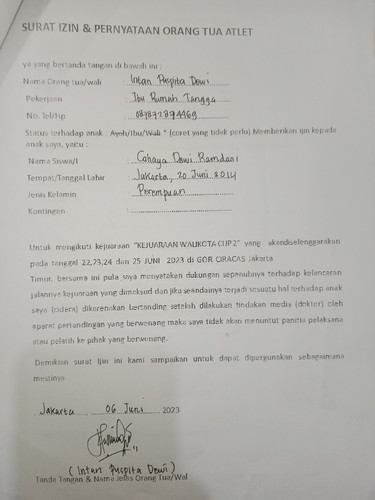 SURAT IZIN & PERNYATAAN ORANG TUA ATLET
ya yang bertanda tangan di bawah ini :
Nama Orang tua/wali : Intan Puspita Dewi
Pekerjaan : Ibu Rumah Tangga
No. Tel/Hp : 087872894469
Status terhadap anak : Ayah/Ibu/Wali * (coret yang tidak perlu) Memberikan ijin kepada
anak saya, yaitu :
Nama Siswa/i : Cahaya Dewi Ramdani
Tempat/Tanggal Lahir : Jakarta, 20 Juni 2014
Jenis Kelamin : Perempuan
Kontingen :
Untuk mengikuti kejuaraan "KEJUARAAN WALIKOTA CUP 2" yang akandiselenggarakan
pada tanggal 22,23,24 dan 25 JUNI 2023 di GOR CIRACAS Jakarta
Timur, bersama ini pula saya menyatakan dukungan sepenuhnya terhadap kelancaran
jalannya kejuaraan yang dimaksud dan jika seandainya terjadi sesuatu hal terhadap anak
saya (cidera) dikarenakan bertanding setelah dilakukan tindakan medis (dokter) oleh
aparat pertandingan yang berwenang maka saya tidak akan menuntut panitia pelaksana
atau pelatih ke pihak yang berwenang.
Demikian surat ijin ini kami sampaikan untuk dapat dipergunakan sebagaimana
mestinya
Jakarta 06 Juni 2023
(Intan Puspita Dewi)
Tanda Tangan & Nama Jelas Orang Tua/Wal